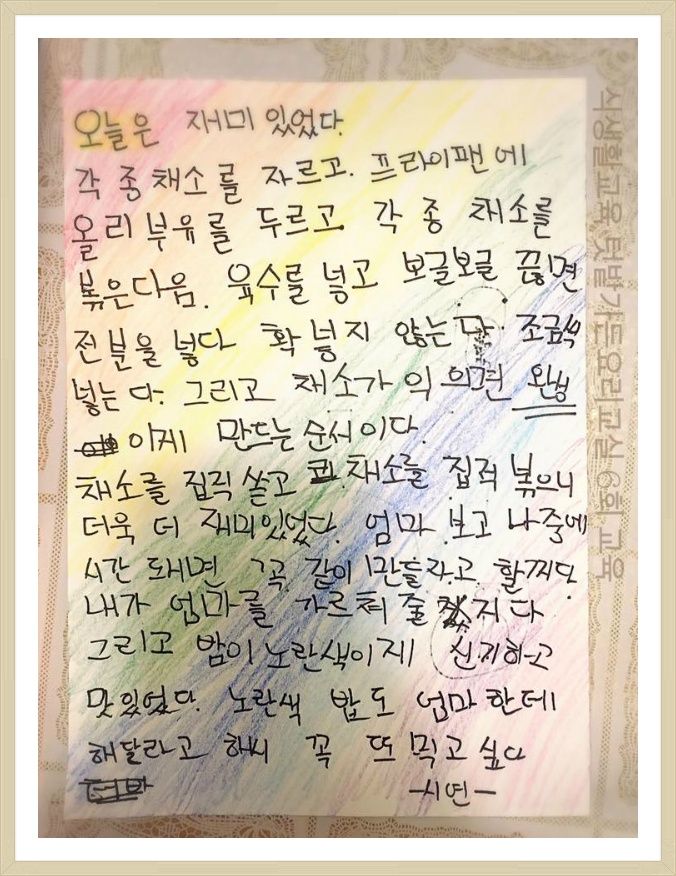 오늘은 재미 있었다.
각 종 채소를 자르고. 프라이팬 에
올리부유를 두르고 각 종 채소를
볶은다음. 육수를 넣고 보글보글 끓면
전분을 넣다 확 넣지 않는다 조금씩
넣는다. 그리고 채소가 익으면 완성
이게 만드는 순서이다.
채소를 집적 쓸고 채소를 집적 볶으니
더욱 더 재미있었다. 엄마 보고 나중에
시간 되시면 꼭 같이 만들라고 할꺼다.
내가 엄마를 가르체 줄 지다
그리고 밥이 노란색이 제 신기하고
맛있었다. 노란색 밥도 엄마 한데
해달라고 해서 꼭 또 먹고 싶다
-시연-
식생활교육 텃밭가든요리교실 6회 교육